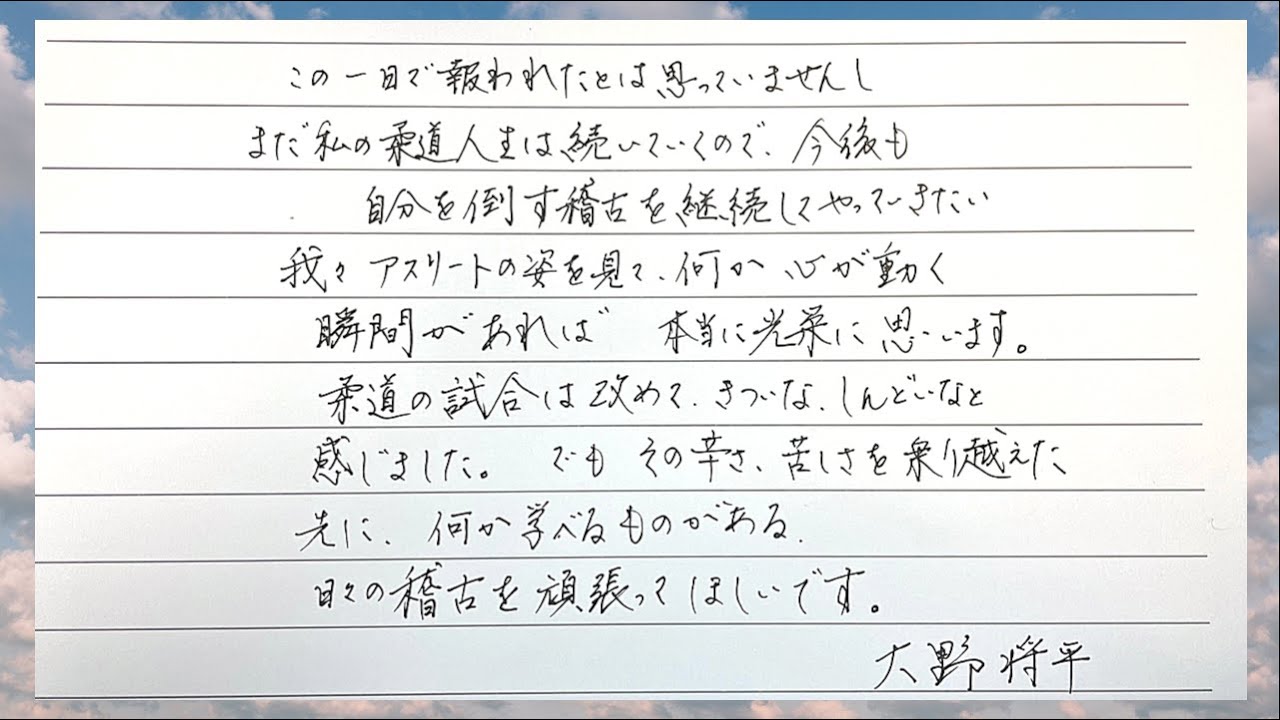 この一日で報われたとは思っていませんし
まだ私の柔道人生は続いていくので、今後も
自分を倒す稽古を継続してやっていきたい
我々アスリートの姿を見て、何か心が動く
瞬間があれば 本当に光栄に思います。
柔道の試合は改めて、きついな、しんどいなと
感じました。 でも その辛さ、苦しさを乗り越えた
先に、何か学べるものがある、
日々の稽古を頑張ってほしいです。
大野将平